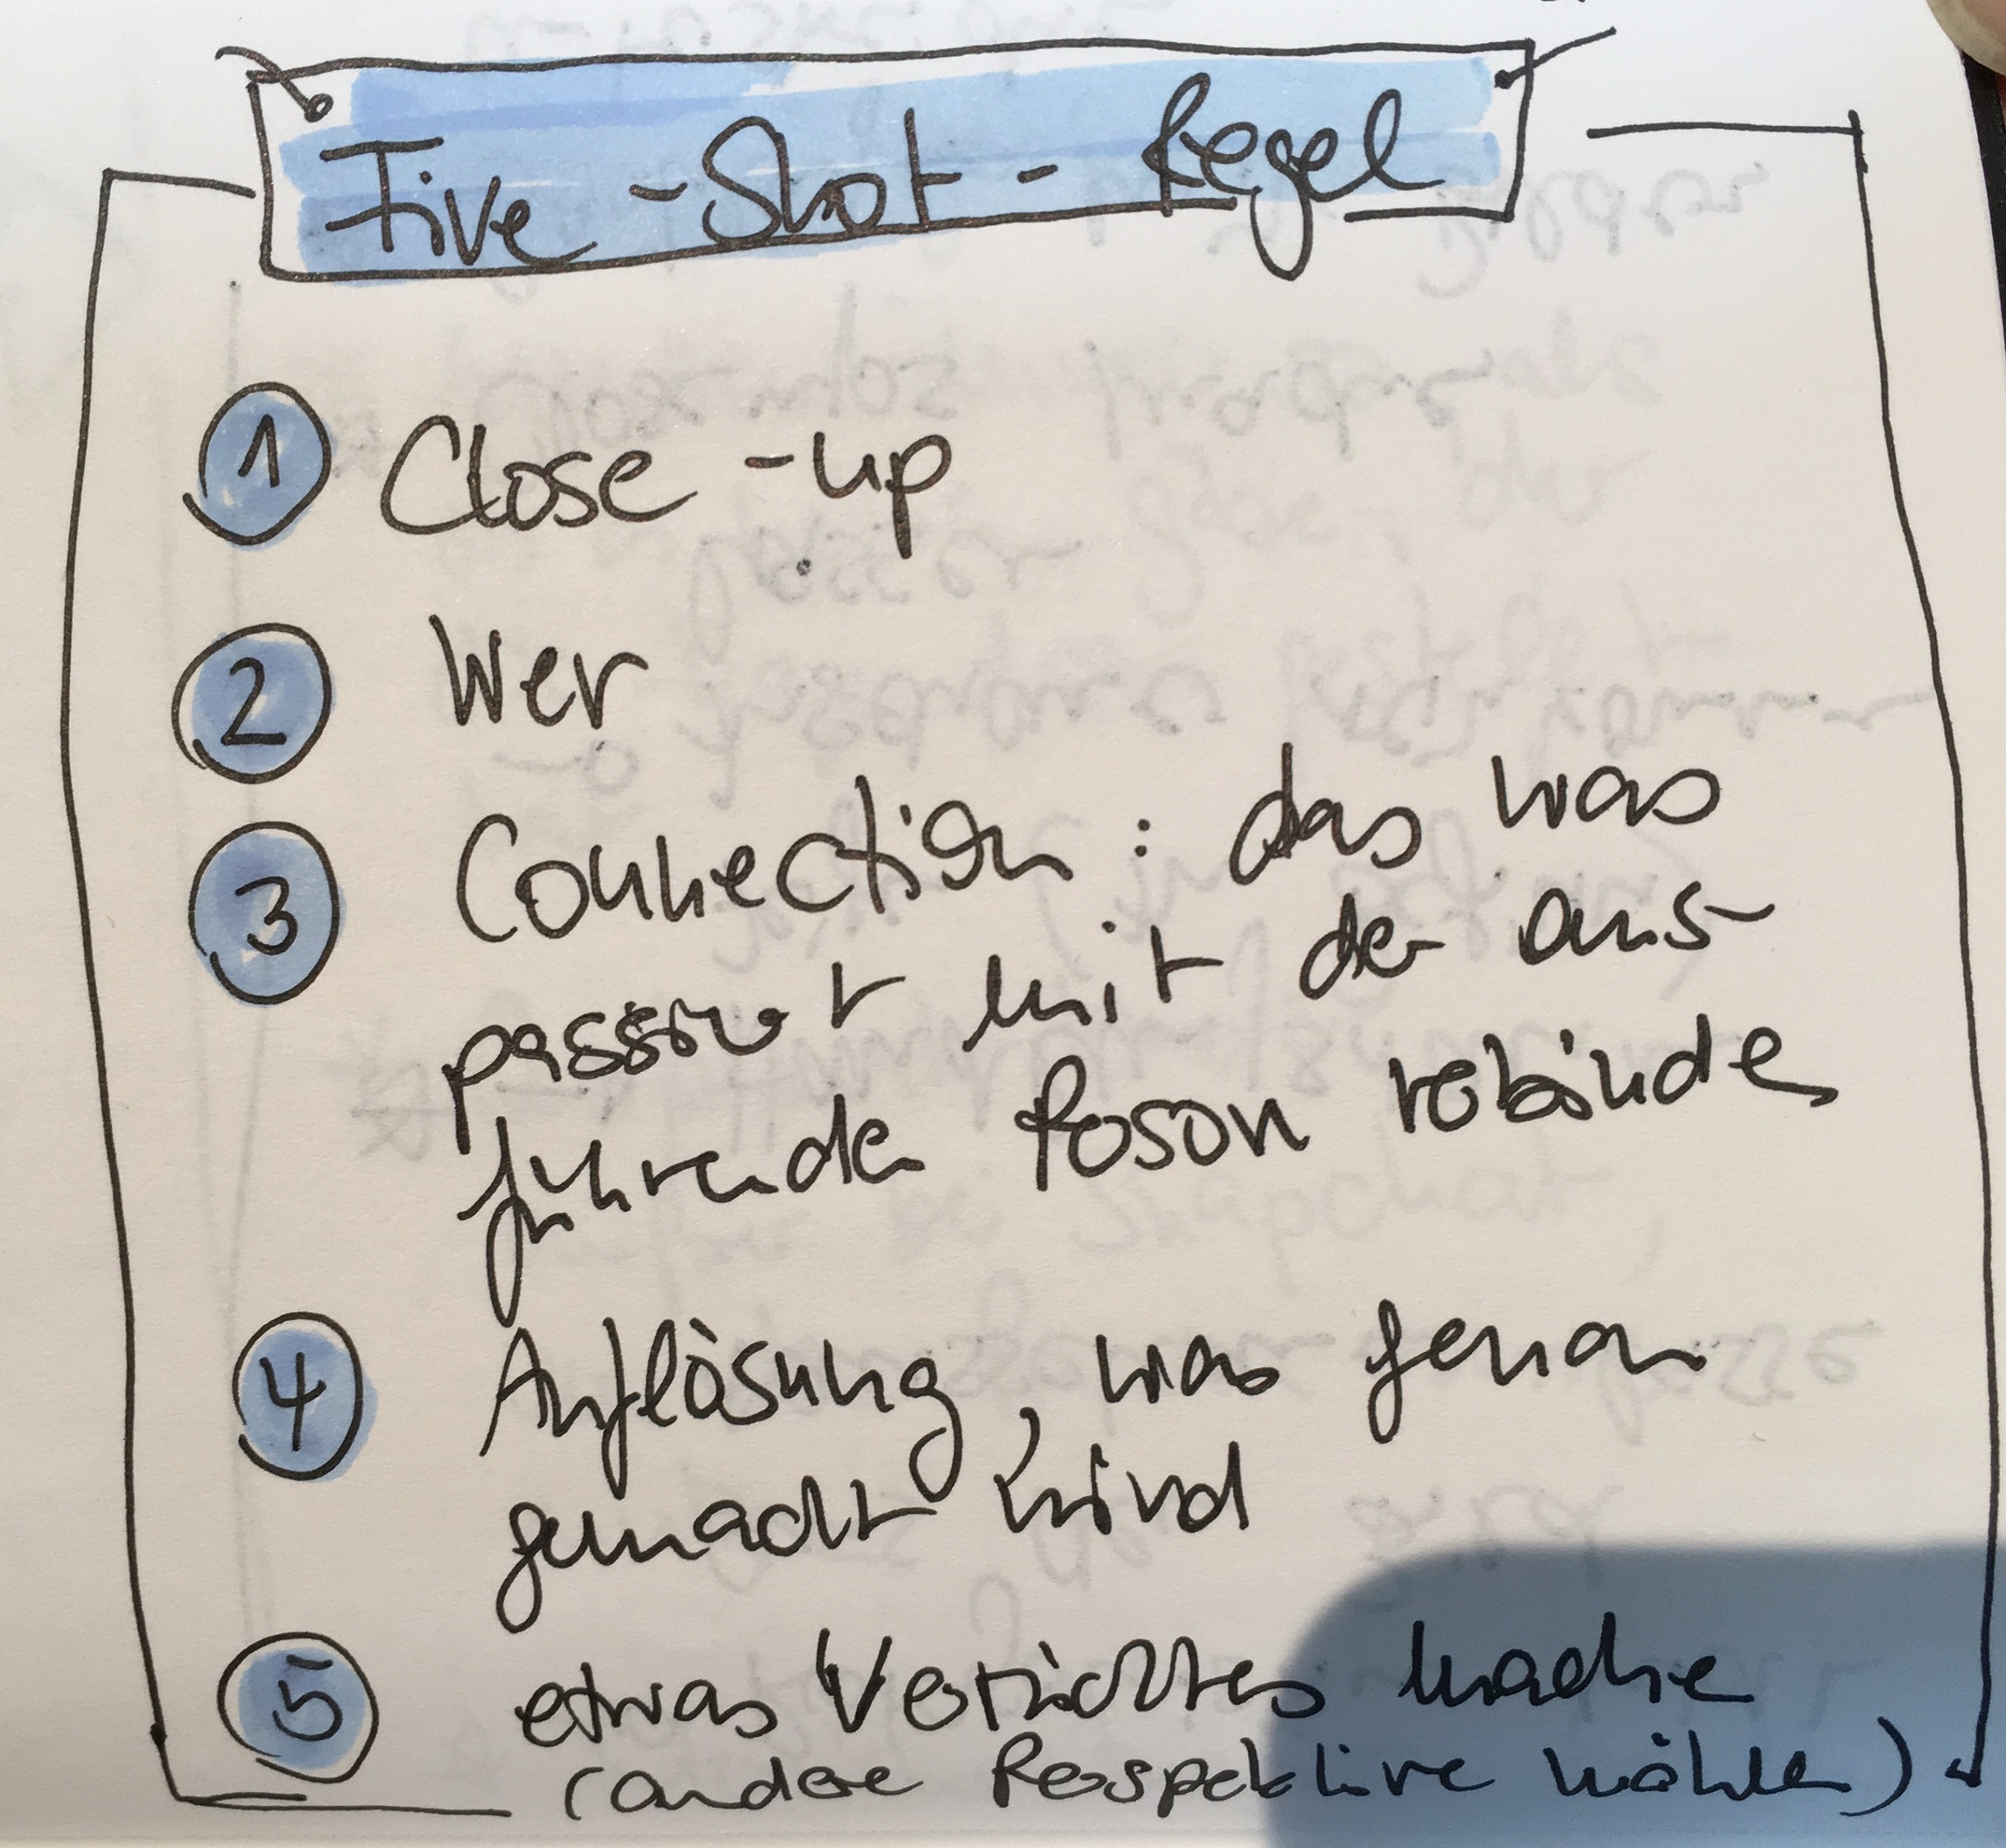 Five-Shot-Regel
1 Close-up
2 Wer
3 Connection: das was
passiert mit der aus-
führenden Person verbinden
4 Auflösung, was genau
gemacht wird
5 etwas Verrücktes machen
(andere Perspektive wählen)